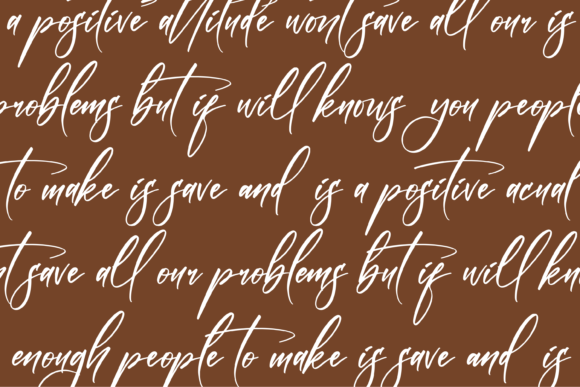 a positive attitude wont save all our is
problems but if will knows you people
to make is save and is a positive acual
nt save all our problems but if will kn
enough people to make is save and is